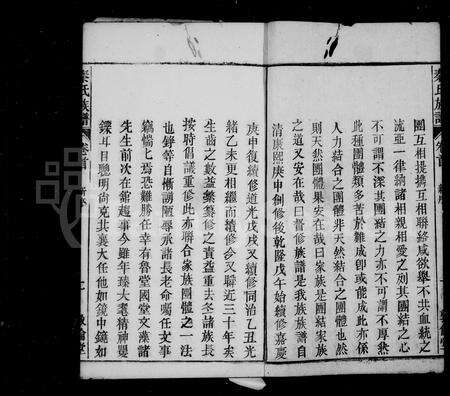 秦氏族譜
卷首
團互相提攜互相聯絡咸欲舉不共血統之
流亞一律納諸相親相愛之列其團結之心
不可謂不深其團結之力亦不可謂不厚然
此種團體類多苦於難成卽或能成此亦係
人力結合之團體非天然結合之團體也然
則天然團體果安在哉曰家族是團結家族
之道又安在哉曰晉修族譜是我族族譜自
清康熙庚申創修後乾隆戊午始續修嘉慶
庚申復續修道光戊戌又續修同治乙丑光
緒乙未更相繼而續修今又聯近三十年矣
生齒之數益繁纂修之責益重去冬諸族長
按時倡議重修此亦聯合家族團體之一法
也錚等自慚譾陋辱承諸長老命囑任文事
竊惴七焉恐難勝任幸有魯堂國堂文藻諸
先生前次在館趨事今雖年臻大耄精神矍
鑠耳目聰明尚克共襄大任他如鏡中鏡如
秦氏族譜
卷首
敦倫堂